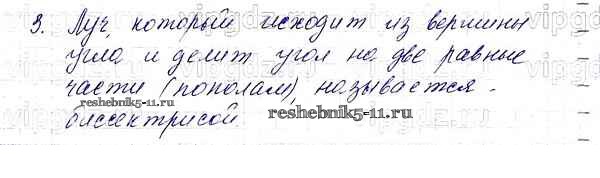 3. Луч, который исходит из вершины
угла и делит угол на две равные
части (пополам), называется -
reshebnik5-11.ru
биссектрисой
reshebnik5-11.ru